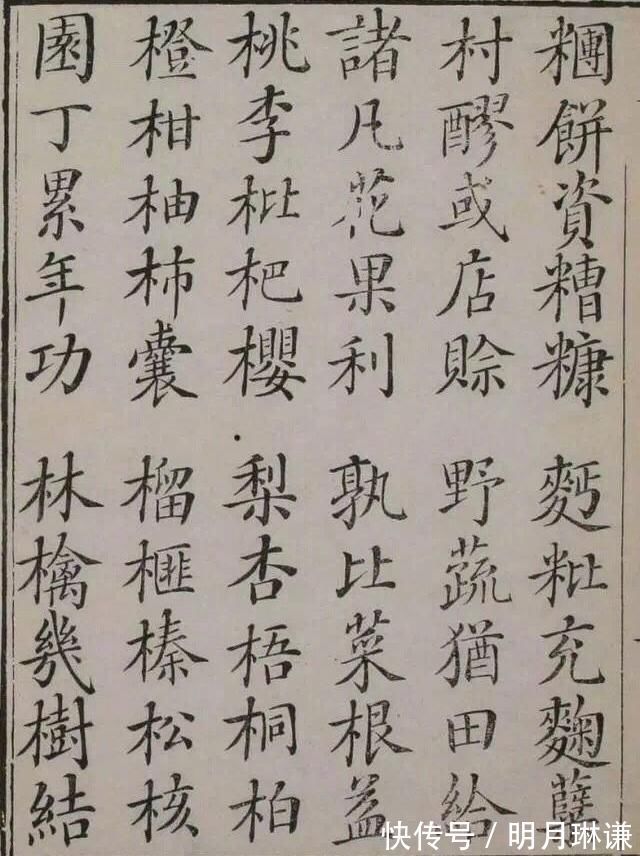 糰餅資糟糠 麫粃充麴櫱
村醪或店賒 野蔬猶田給
諸凡花果利 孰比菜根益
桃李枇杷櫻 梨杏梧桐柏
橙柑柚柿囊 榴榧榛松核
園丁累年功 林檎幾樹結
快传号 / 明月琳谦